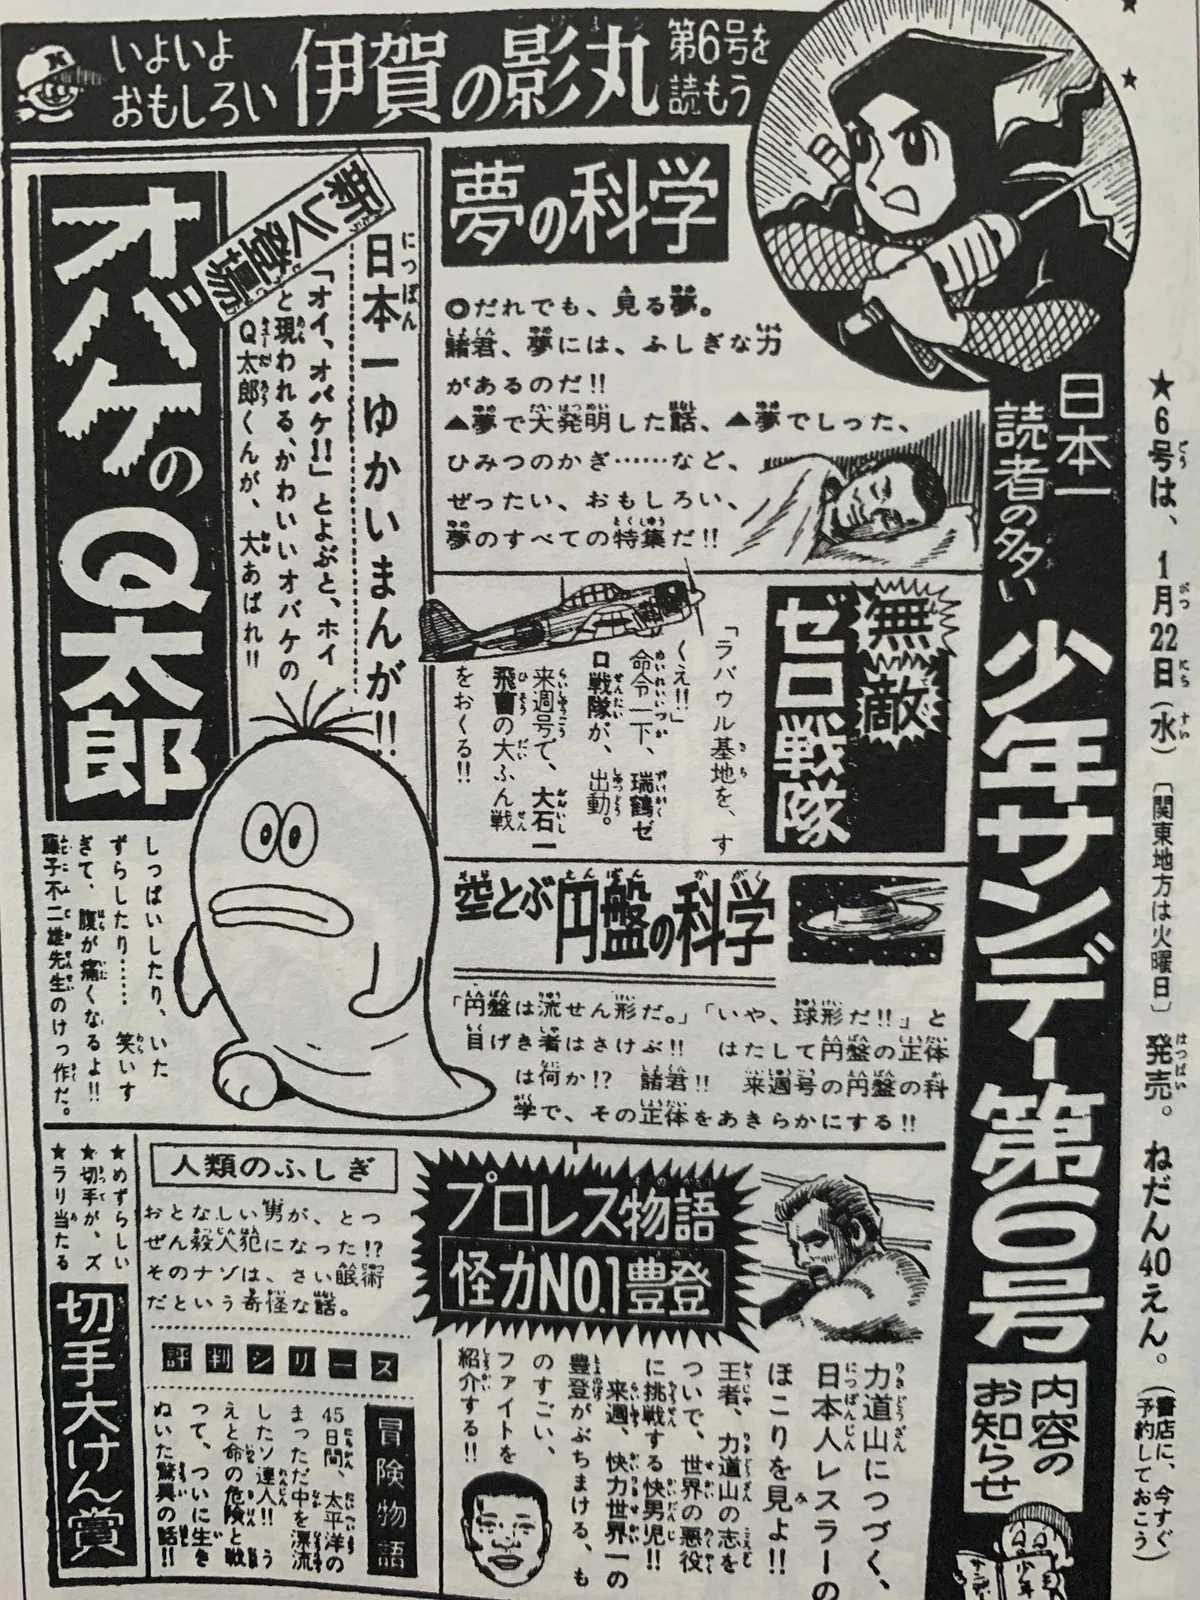 いよいよ
おもしろい
伊賀の影丸
第6号を
読もう
★6号は、1月22日(水)〔関東地方は火曜日〕発売。ねだん40えん。
(書店に、今すぐ
予約しておこう)
日本一
読者の多い
少年サンデー第6号
内容の
お知らせ
夢の科学
◎だれでも、見る夢。
諸君、夢には、ふしぎな力
があるのだ!!
▲夢で大発明した話、▲夢でしった、
ひみつのかぎ……など、
ぜったい、おもしろい、
夢のすべての特集だ!!
無敵
ゼロ戦隊
「ラバウル基地を、す
くえ!!」
命令一下、瑞鶴ゼ
ロ戦隊が、出動。
来週号で、大石一
飛曹の大ふん戦
をおくる!!
空とぶ円盤の科学
「円盤は流せん形だ。」「いや、球形だ!!」と
目げき者はさけぶ!! はたして円盤の正体
は何か!? 諸君!! 来週号の円盤の科
学で、その正体をあきらかにする!!
新しく登場
オバケのQ太郎
日本一ゆかいまんが!!
「オイ、オバケ!!」とよぶと、ホイ
と現われる、かわいいオバケの
Q太郎くんが、大あばれ!!
しっぱいしたり、いた
ずらしたり……笑いす
ぎて、腹が痛くなるよ!!
藤子不二雄先生のけっ作だ。
プロレス物語
怪力NO.1豊登
力道山につづく、
日本人レスラーの
ほこりを見よ!!
王者、力道山の志を
ついで、世界の悪役
に挑戦する快男児!!
来週、快力世界一の
豊登がぶちまける、も
のすごい、
ファイトを
紹介する!!
人類のふしぎ
おとなしい男が、とつ
ぜん殺人犯になった!?
そのナゾは、さい眠術
だという奇怪な話。
評判シリーズ
冒険物語
45日間、太平洋の
まっただ中を漂流
したソ連人!! う
えと命の危険と戦
って、ついに生き
ぬいた驚異の話!!
★めずらしい
★切手が、ズ
★ラリ当たる
切手大けん賞